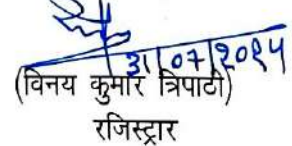 31/07/2024
(विनय कुमार त्रिपाठी)
रजिस्ट्रार